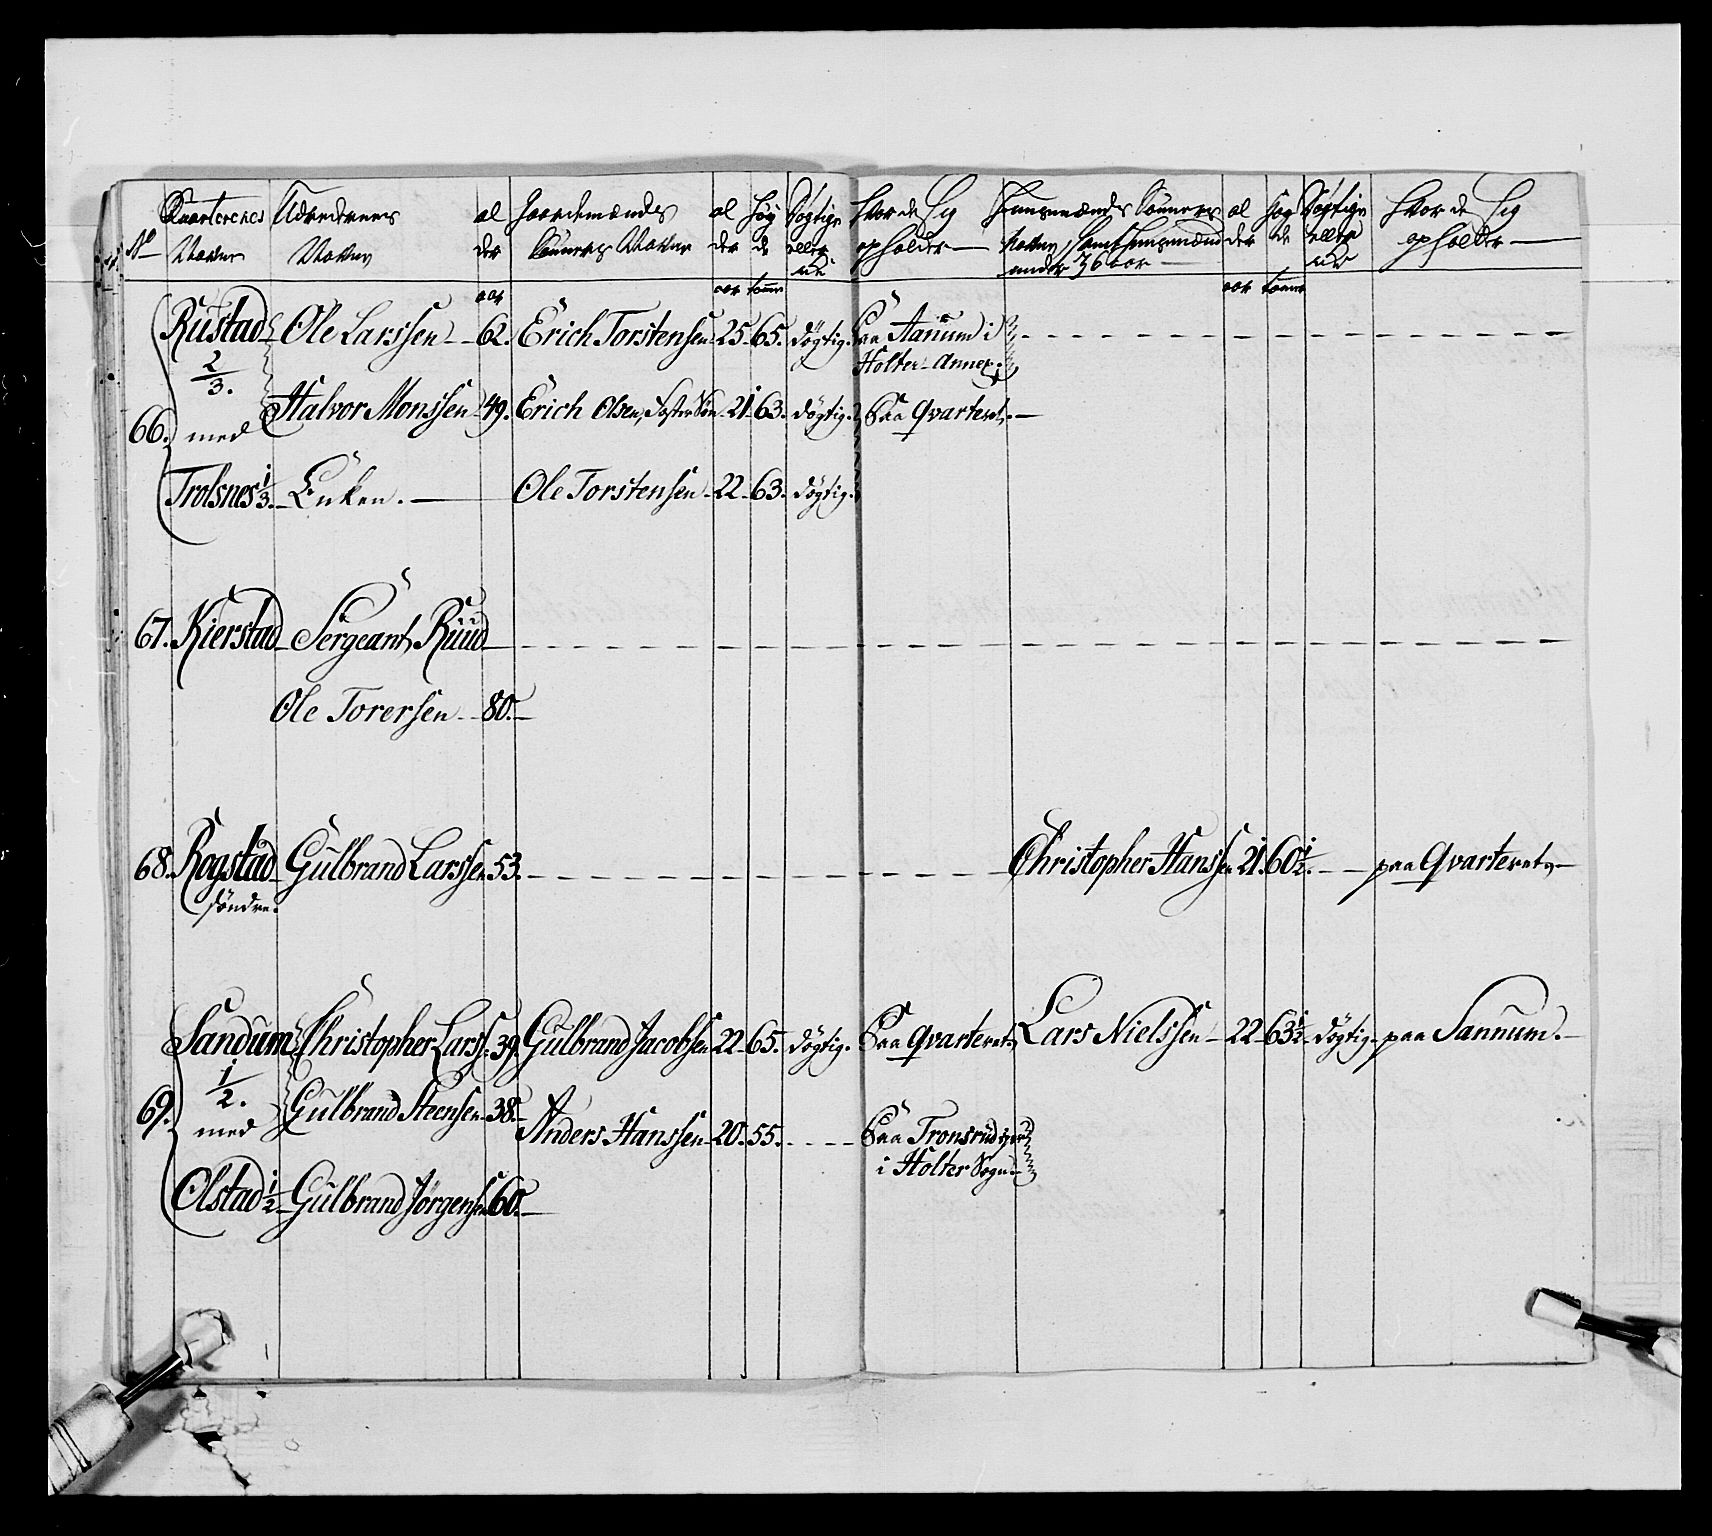 No Quarterenes Navne Udredernes Navne al der Gaardemænds Sønners Navne al der Høy de Døgtige eller ei Hvor de Sig opholder Huusmænds Sønners Navne, samt Huusmænd under 36 aar al der Høy de Døgtige eller ei Hvor de Sig opholder
aar aar tomr aar tomr
Rustad Ole Larssen 62. Erich Torstensen 25. 65. døgtig. Paa Aarum i
2/3. Holter Annex.
Halvor Monssen 49. Erich Olsen, 21. 63. døgtig. Paa Qvarteret.
66. med
Trolsnes 1/3. Enken. Ole Torstensen 22. 63. døgtig.
67. Kierstad Sergeant Ruud
Ole Torersen 80.
68. Rogstad Gulbrand Larssen 53. Christopher Hanssen 21. 60 1/2. paa Qvarteret
söndre.
Sandum Christopher Larss: 39. Gulbrand Jacobsen 22. 65. døgtig. Paa Qvarteret Lars Nielssen 22 63 1/2 døgtig paa Sannum.
1/2. Gulbrand Steensen 38.
69. med Anders Hanssen 20. 55. Paa Tronsrud
i Holter Sogn
Olstad 1/2 Gulbrand Jörgensen 60.